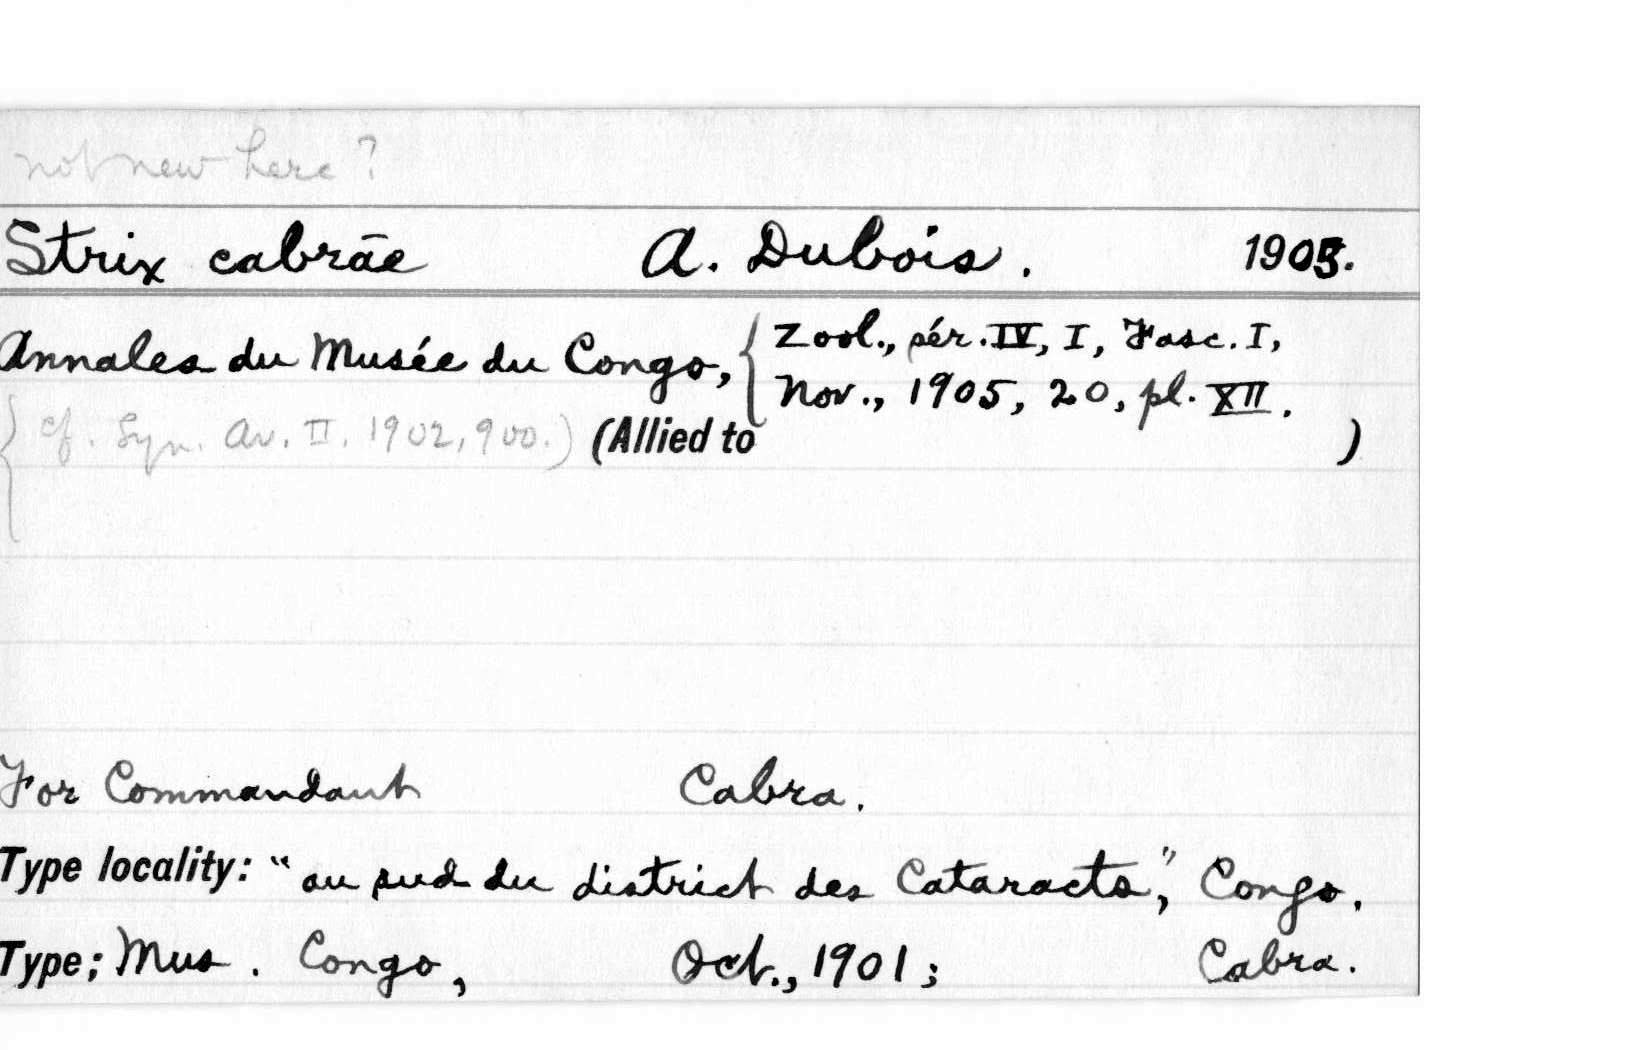 not new here?
Strix cabrāe A. Dubois. 1905.
Annales du Musée du Congo, { Zool., sér. IV, I, Fasc. I,
Nov., 1905, 20, pl. XII.
{ cf. Syn. Av. II. 1902, 900.) (Allied to )
For Commandant Cabra.
Type locality: "au sud du district des Cataracts", Congo.
Type; Mus. Congo, Oct., 1901; Cabra.